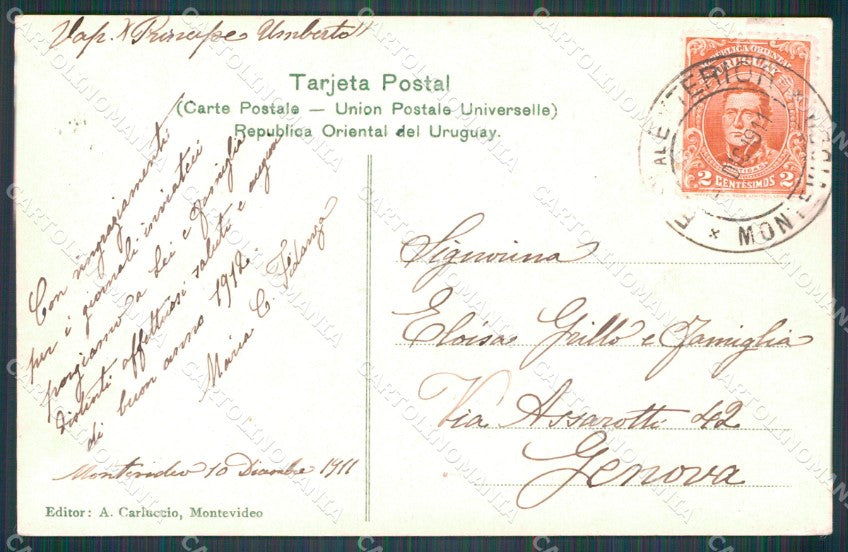 Vap. "Principe Umberto"
Tarjeta Postal
(Carte Postale — Union Postale Universelle)
Republica Oriental del Uruguay.
REPUBLICA ORIENTAL
URUGUAY
2 CENTÉSIMOS 2
1911
MON
Con ringraziamenti
per i giornali inviatici
porgiamo a Lei e famiglia
distinti affettuosi saluti e auguri
di buon anno 1912.
Maria C. Fidanza
Montevideo 10 Dicembre 1911
Signorina
Eloisa Grillo e Famiglia
Via Assarotti 42
Genova
Editor: A. Carluccio, Montevideo
CARTOLINOMANIA